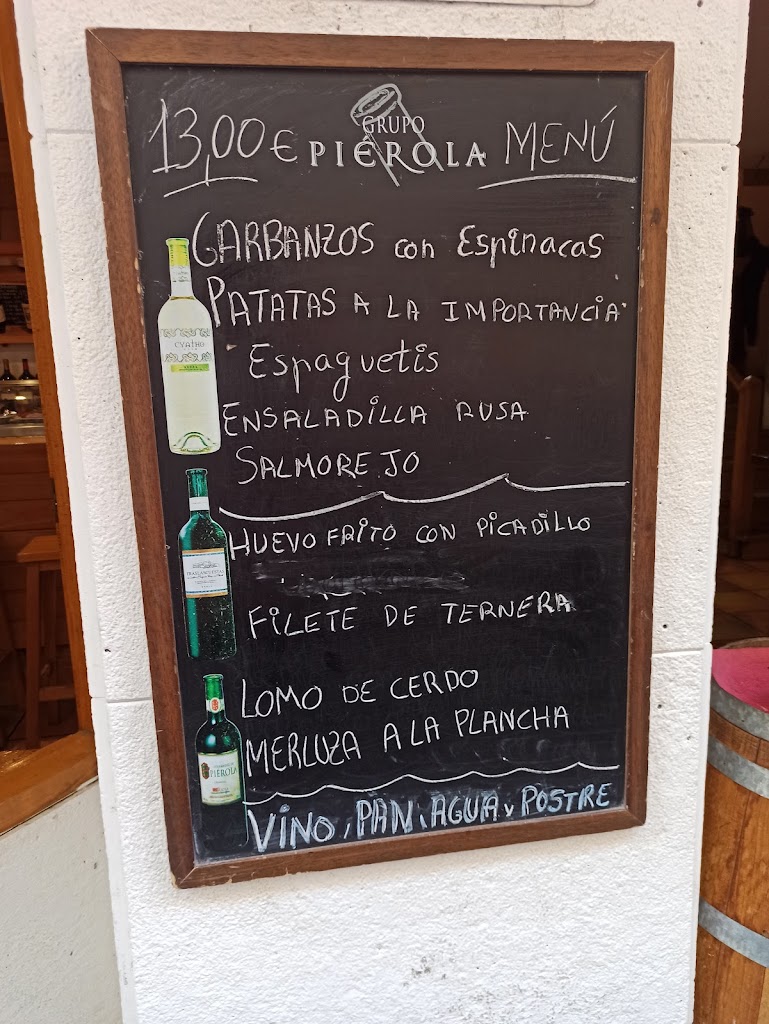 13,00 € GRUPO PIÉROLA MENÚ
GARBANZOS con Espinacas
PATATAS A LA IMPORTANCIA
Espaguetis
ENSALADILLA RUSA
SALMOREJO
HUEVO FRITO CON PICADILLO
FILETE DE TERNERA
LOMO DE CERDO
MERLUZA A LA PLANCHA
VINO, PAN, AGUA y POSTRE
CYATHO
PIÉROLA